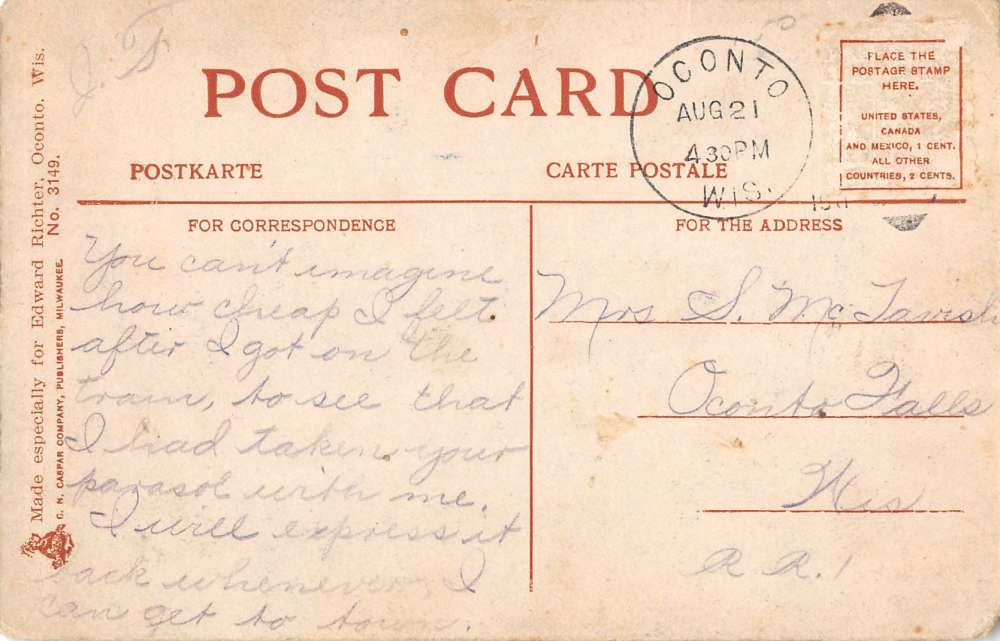 J. S
POST CARD
POSTKARTE
CARTE POSTALE
OCONTO
AUG 21
4 30 PM
WIS.
PLACE THE
POSTAGE STAMP
HERE.
UNITED STATES,
CANADA
AND MEXICO, 1 CENT.
ALL OTHER
COUNTRIES, 2 CENTS.
Made especially for Edward Richter, Oconto, Wis.
No. 3149.
C. N. CASPAR COMPANY, PUBLISHERS, MILWAUKEE.
FOR CORRESPONDENCE
You can't imagine
how cheap I felt
after I got on the
train, to see that
I had taken your
parasol with me.
I will express it
back whenever I
can get to town.
FOR THE ADDRESS
Mrs S. Mc Tavish
Oconto Falls
Wis
R R. 1